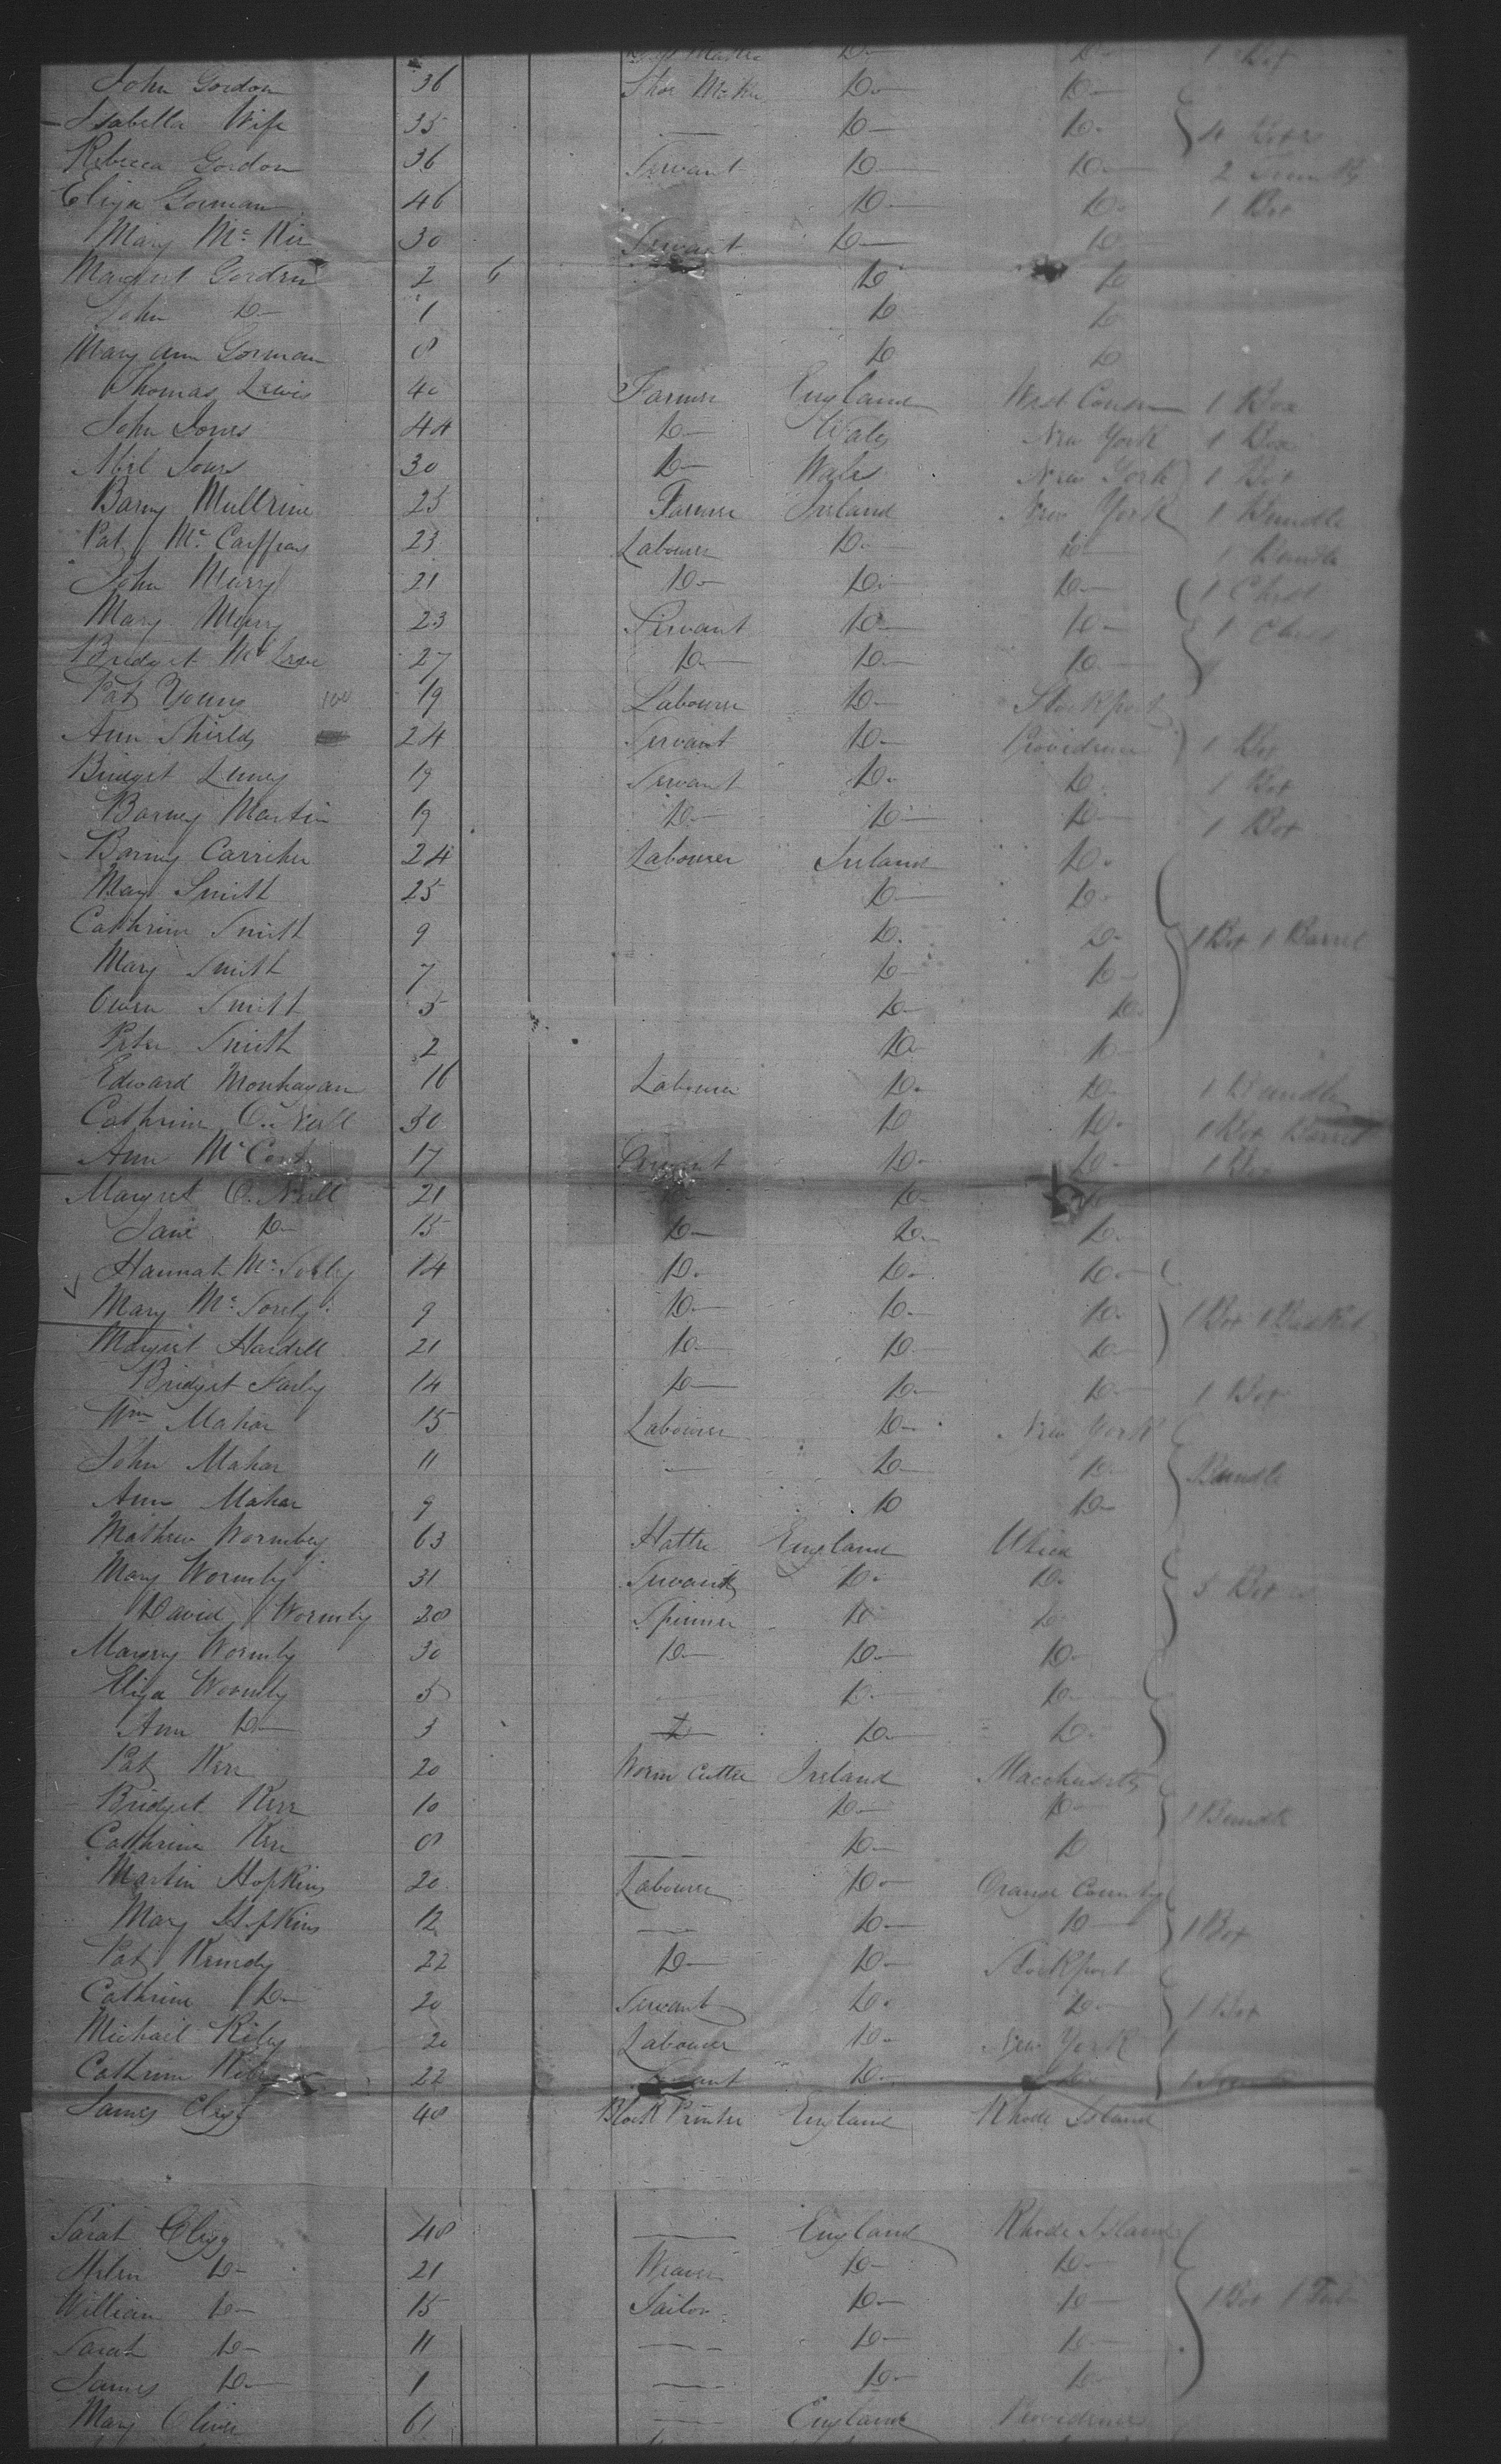 Do- Do- 1 Box
John Gordon 36 Shoe Maker Do- Do-
Isabella Wife 35 — Do- Do- 4 Boxes
Rebecca Gordon 36 Servant Do- Do- 2 Trunks
Eliza Gorman 46 Do- Do- 1 Box
Mary Mc 30 Servant Do- Do
Margret Gordon 2 6 Do Do
John Do- 1 Do Do
Mary Ann Gorman 8 Do Do
Thomas Lewis 40 Farmer England 1 Box
John Jones 44 Do- Wales New York 1 Box
Abil Jones 30 Do- Wales New York 1 Box
Barny 25 Farmer Ireland New York 1 Bundle
Pat Mc Caffray 23 Labourer Do- Do- 1 Bundle
John Murry 21 Do- Do- Do- 1 Chest
Mary Murry 23 Servant Do- Do- 1 Chest
Bridget Mc 27 Do- Do- Do-
Pat Young 100 19 Labourer Do- Stockport
Ann Shields 24 Servant Do- Providence 1 Box
Bridget 19 Servant Do- Do- 1 Box
Barney Martin 19 Do- Do- Do- 1 Box
Barny Carriher 24 Labourer Ireland Do-
Mary Smith 25 Do- Do-
Cathrine Smith 9 Do- Do- 1 Box 1 Barrel
Mary Smith 7 Do- Do-
Owen Smith 5 Do- Do-
Peter Smith 2 Do- Do-
Edward Monhagan 16 Labourer Do- Do- 1 Bundle
Cathrine O.Neill 30 Do Do- 1 Box Barrel
Ann Mc 17 Servant Do- Do- 1 Box
Margret O.Neill 21 Do- Do
Jane Do- 15 Do- Do- Do-
Hannah Mc 14 Do- Do- Do-
Mary Mc Sorely 9 Do- Do- Do- 1 Box 1 Basket
Margret Hardell 21 Do- Do- Do-
Bridget Farly 14 Do- Do- Do- 1 Box
Wm Mahar 15 Labourer Do- New York
John Mahar 11 — Do- Do- Bundle
Ann Mahar 9 Do Do-
Mathew Wormbey 63 Hatter England Utica
Mary Wormby 31 Servant Do- Do- 5 Boxes
David Wormby 28 Spinner Do Do
Margry Wormby 30 Do- Do- Do-
Eliza Wormby 5 Do- Do-
Ann Do- 3 Do Do- Do-
Pat Kerr 20 Cutter Ireland Macchusetts
Bridget Kerr 10 Do- Do- 1 Bundle
Cathrine Kerr 8 — Do- Do
Martin Hopkins 20 Labourer Do- Orange County
Mary Hopkins 12 — Do- Do- 1 Box
Pat Kenedy 22 Do- Do- Stockport
Cathrine Do- 20 Servant Do- Do- 1 Box
Michail Riley 20 Labourer Do- New York
Cathrine Riley 22 Servant Do- Do-
James Clegg 48 Block Printer England Rhode Island
Sarah Clegg 48 — England Rhode Island
Helen Do- 21 Weaver Do- Do-
William Do- 15 Tailor Do- Do- 1 Box 1 Tub
Sarah Do- 11 — Do- Do-
James Do- 1 — Do- Do-
Mary Oliver 61 — England Providence